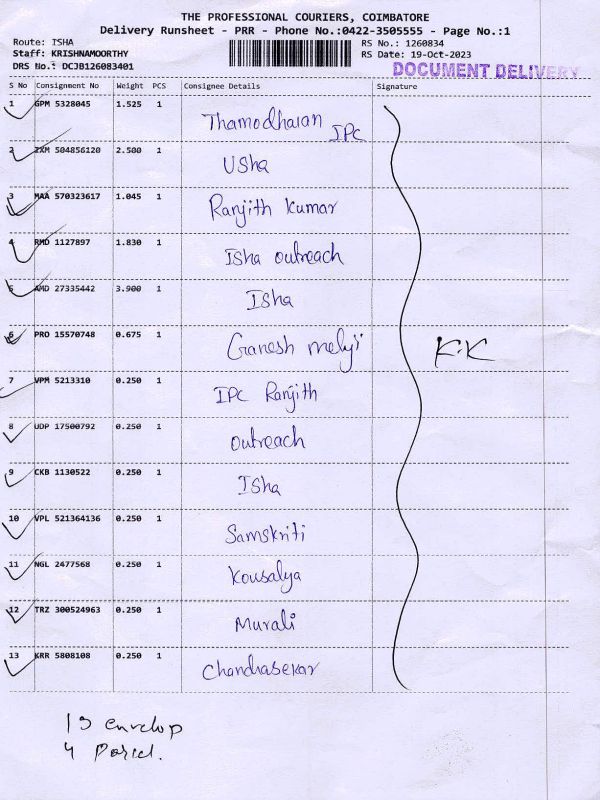 THE PROFESSIONAL COURIERS, COIMBATORE
Delivery Runsheet - PRR - Phone No.:0422-3505555 - Page No.:1
Route: ISHA
RS No.: 1260834
Staff: KRISHNAMOORTHY
RS Date: 19-Oct-2023
DRS No.: DCJB126083401
DOCUMENT DELIVERY
S No Consignment No Weight PCS Consignee Details Signature
1 GPM 5328045 1.525 1 Thamodharan IPC
2 ZXM 504856120 2.500 1 Usha
3 MAA 570323617 1.045 1 Ranjith Kumar
4 RMD 1127897 1.830 1 Isha outreach
5 AMD 27335442 3.900 1 Isha
6 PRO 15570748 0.675 1 Ganesh K.K
7 VPM 5213310 0.250 1 IPC Ranjith
8 UDP 17500792 0.250 1 outreach
9 CKB 1130522 0.250 1 Isha
10 VPL 521364136 0.250 1 Samskriti
11 NGL 2477568 0.250 1 Kousalya
12 TRZ 300524963 0.250 1 Murali
13 KRR 5808108 0.250 1 Chandrasekar
envelop
4 Parcel.